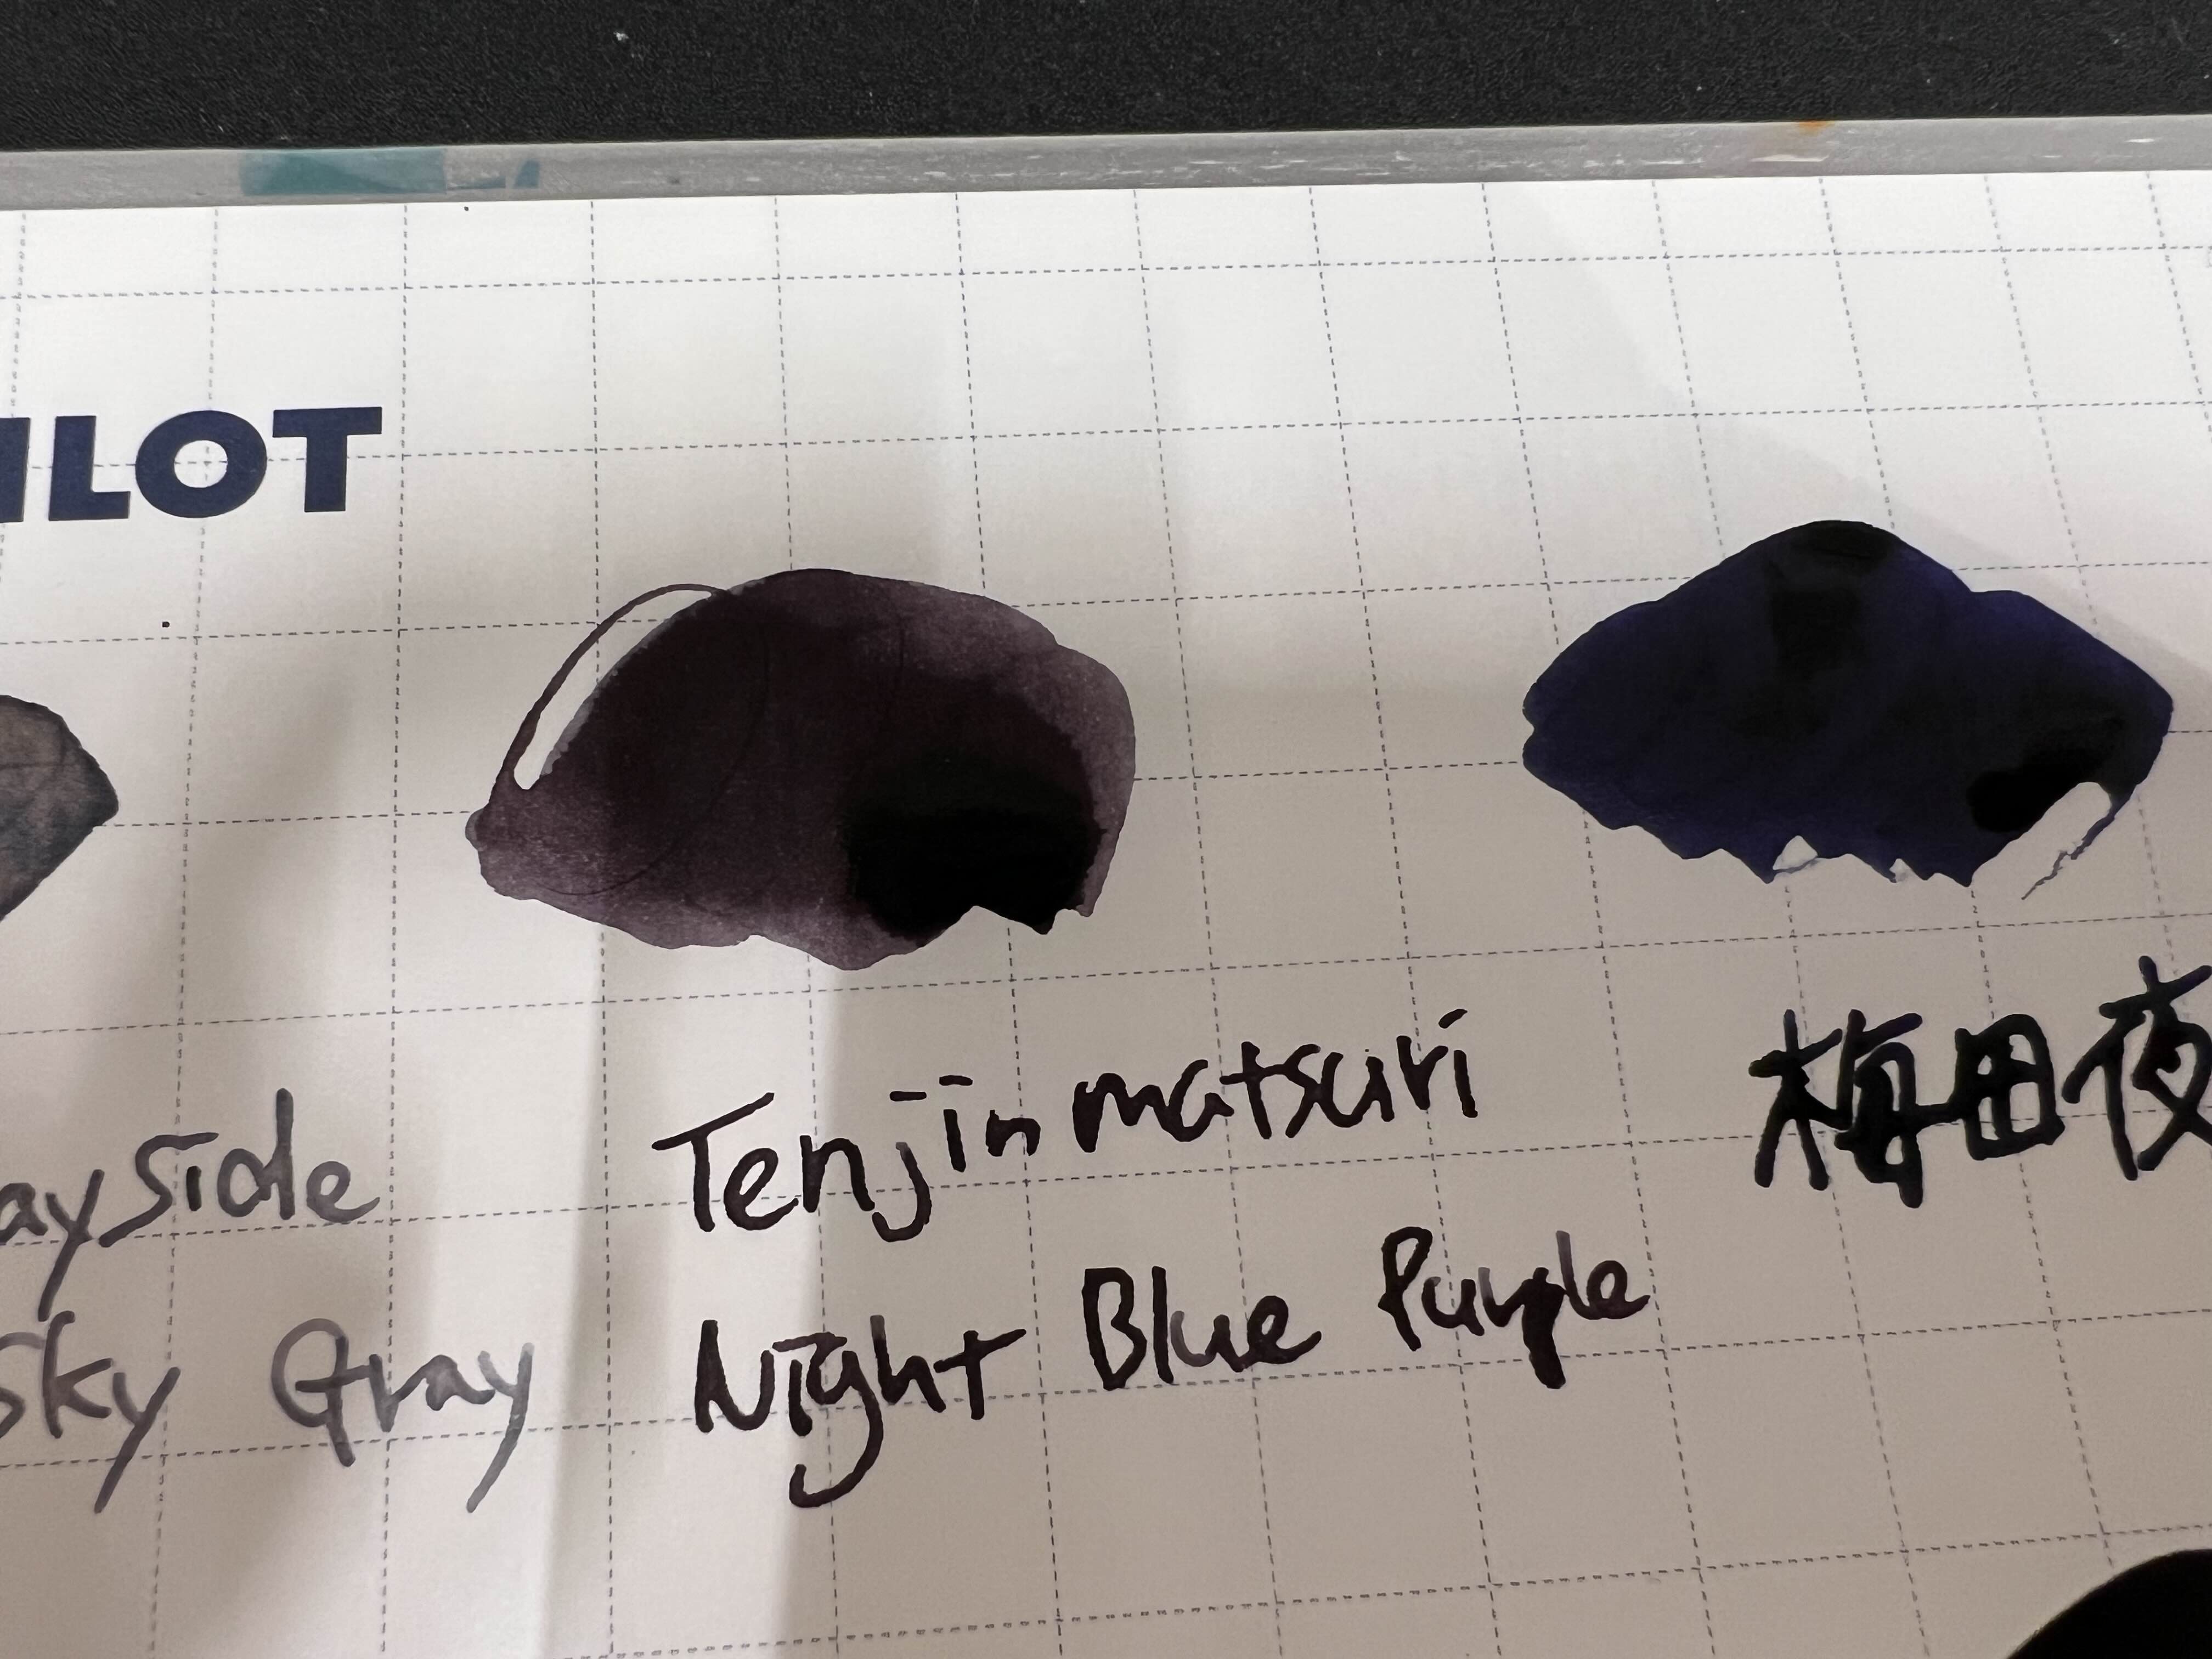 ILOT
ayside
Sky Gray
Tenjinmatsuri
Night Blue Purple
梅田夜